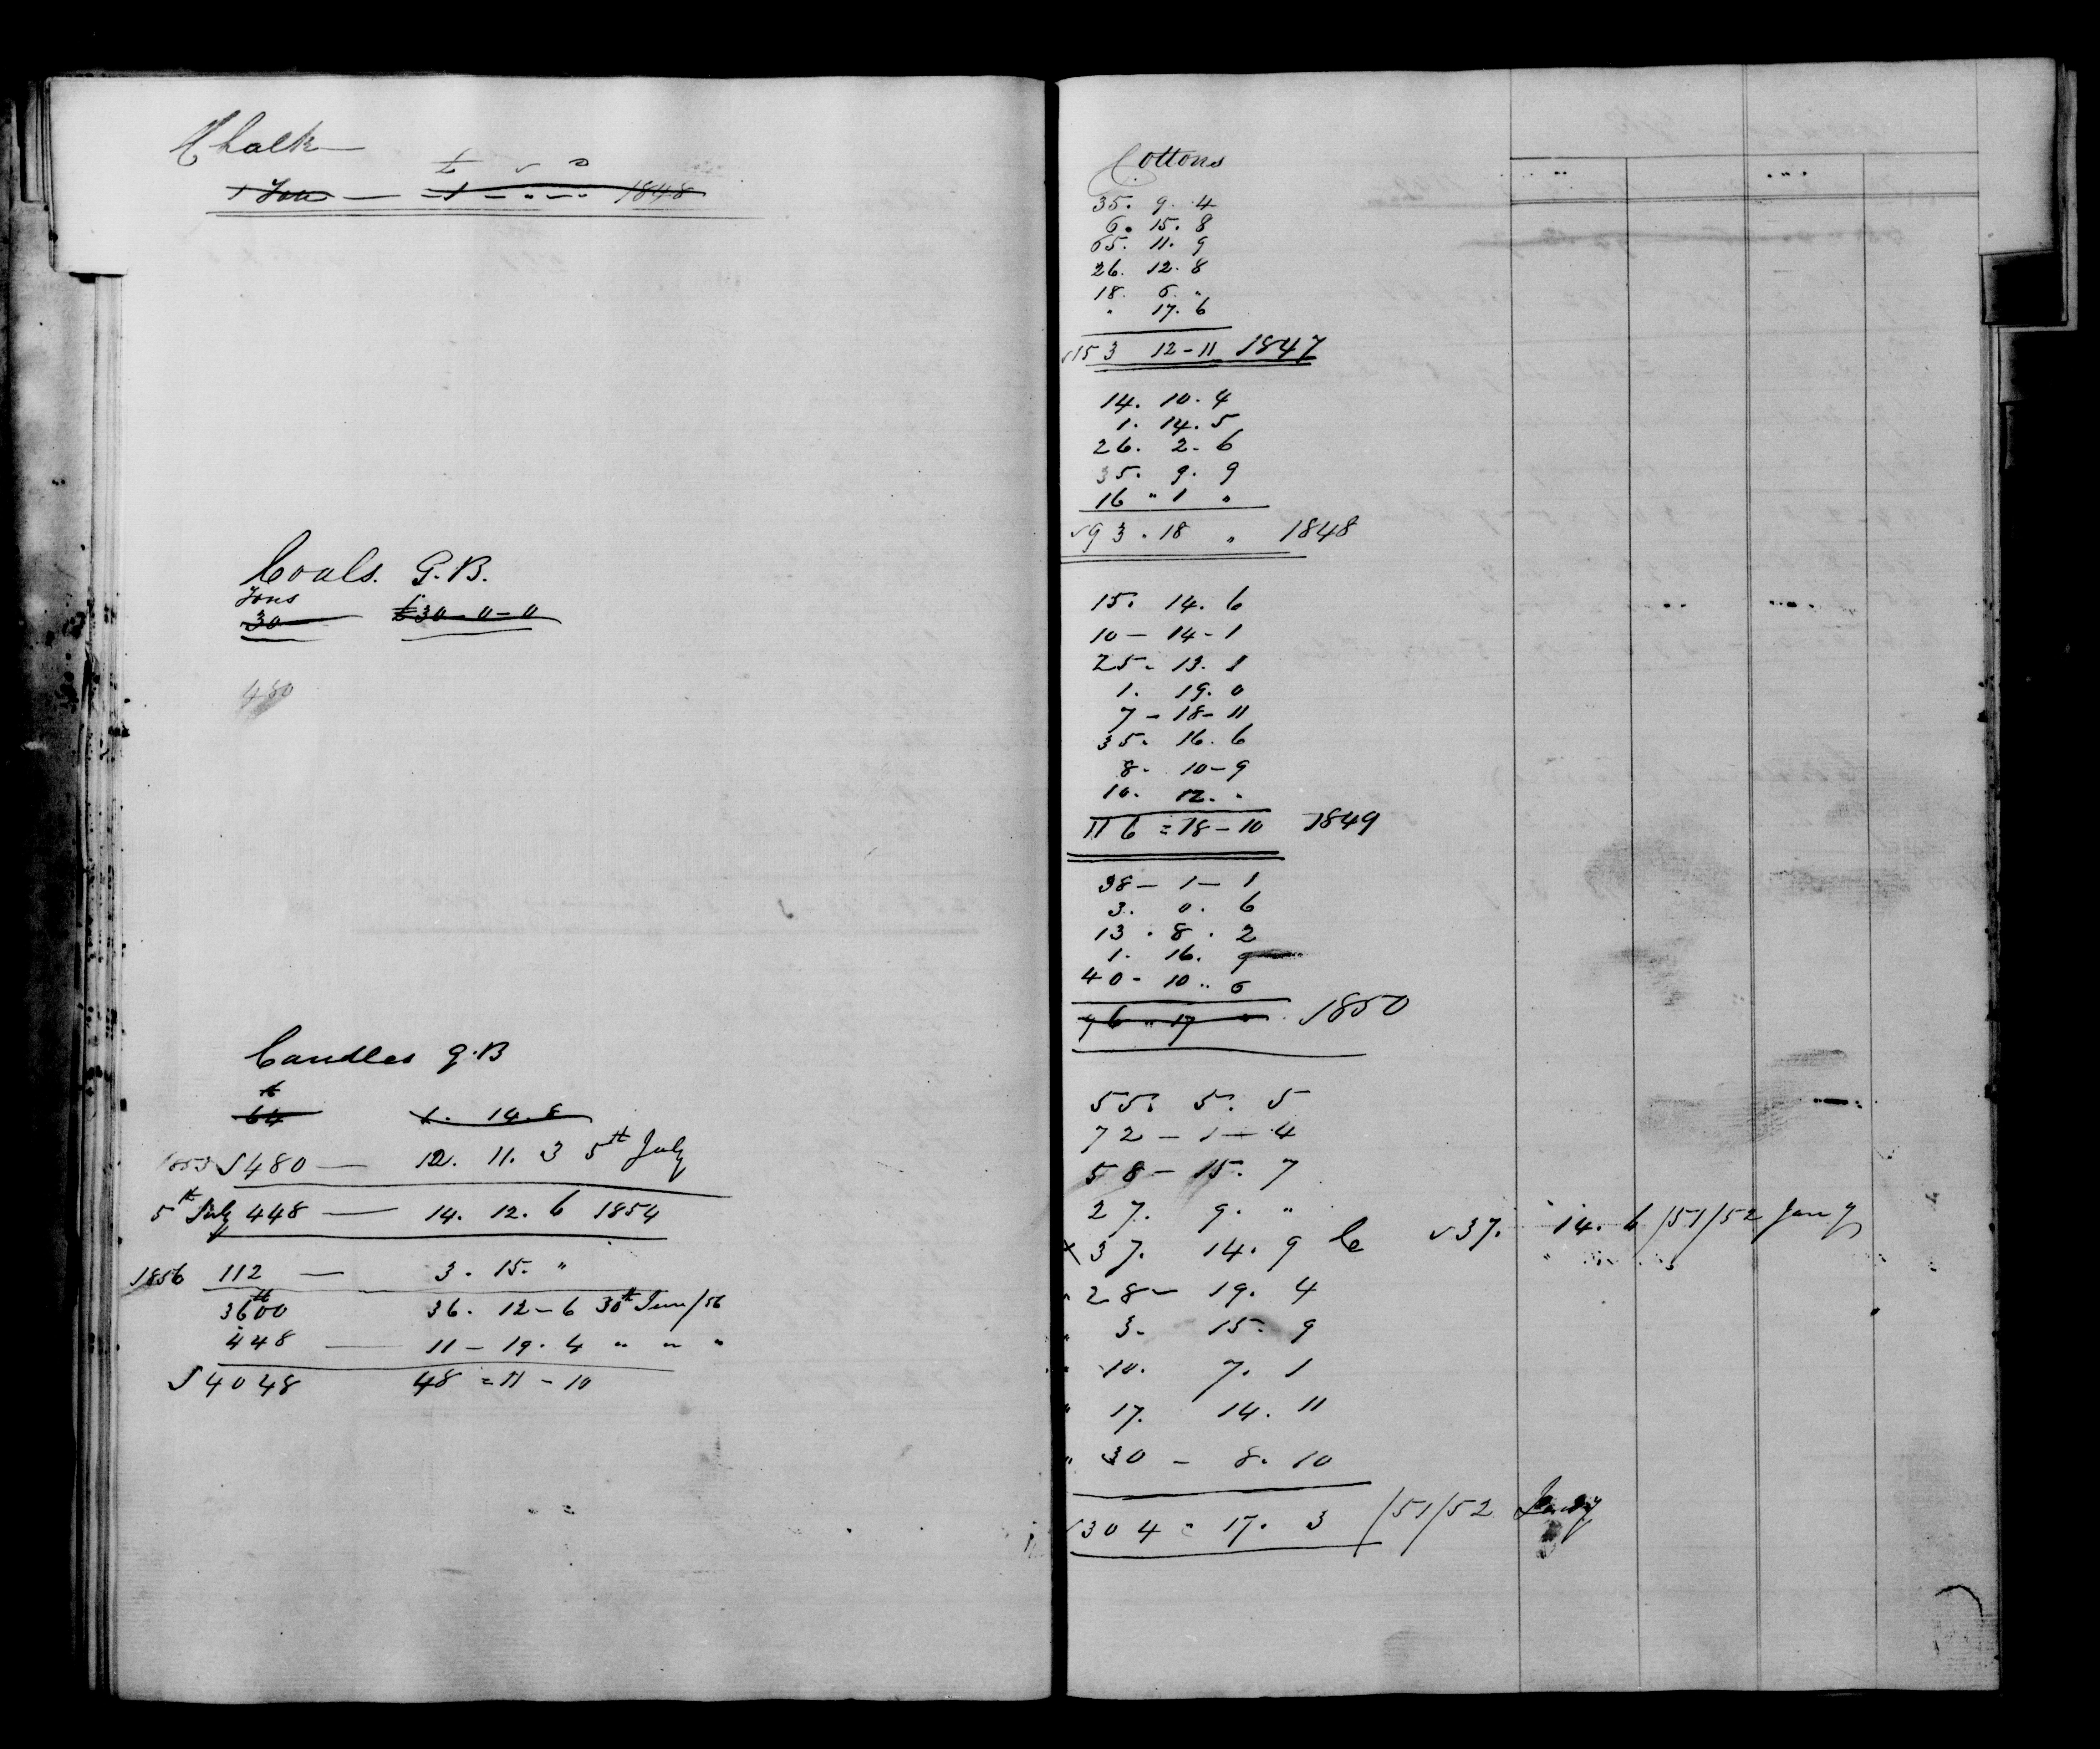 Chalk
£ s D
1 Ton — 1 - " - " 1848
Coals. G.B.
Tons
30 £30-0-0
450
Candles G.B
lb
64 1. 14. 8
1853 √480 — 12. 11. 3 5th July
5th July 448 — 14. 12. 6 1854
1856 112 — 3. 15. "
3600 36. 12-6 30th June/56
448 — 11-19. 4 " " "
√4048 48=11-10
Cottons
35. 9. 4
6. 15. 8
65. 11. 9
26. 12. 8
18. 6. "
" 17. 6
√153 12-11 1847
14. 10. 4
1. 14. 5
26. 2. 6
35. 9. 9
16 " 1 "
√93. 18 " 1848
15. 14. 6
10-14-1
25. 13. 1
1. 19. 0
7-18-11
35. 16. 6
8. 10-9
10. 12. "
116=18-10 1849
38-1-1
3. 0. 6
13. 8. 2
1. 16. 9
40-10 " 6
96 " 17 " 1850
55. 5. 5
72-1-4
58-15. 7
27. 9. "
x 37. 14. 9 √37. 14. 6 /51/52 Jany
" 28-19. 4
" 3. 15. 9
" 10. 7. 1
" 17. 14. 11
" 30-8. 10
√304=17. 3 /51/52 Jany